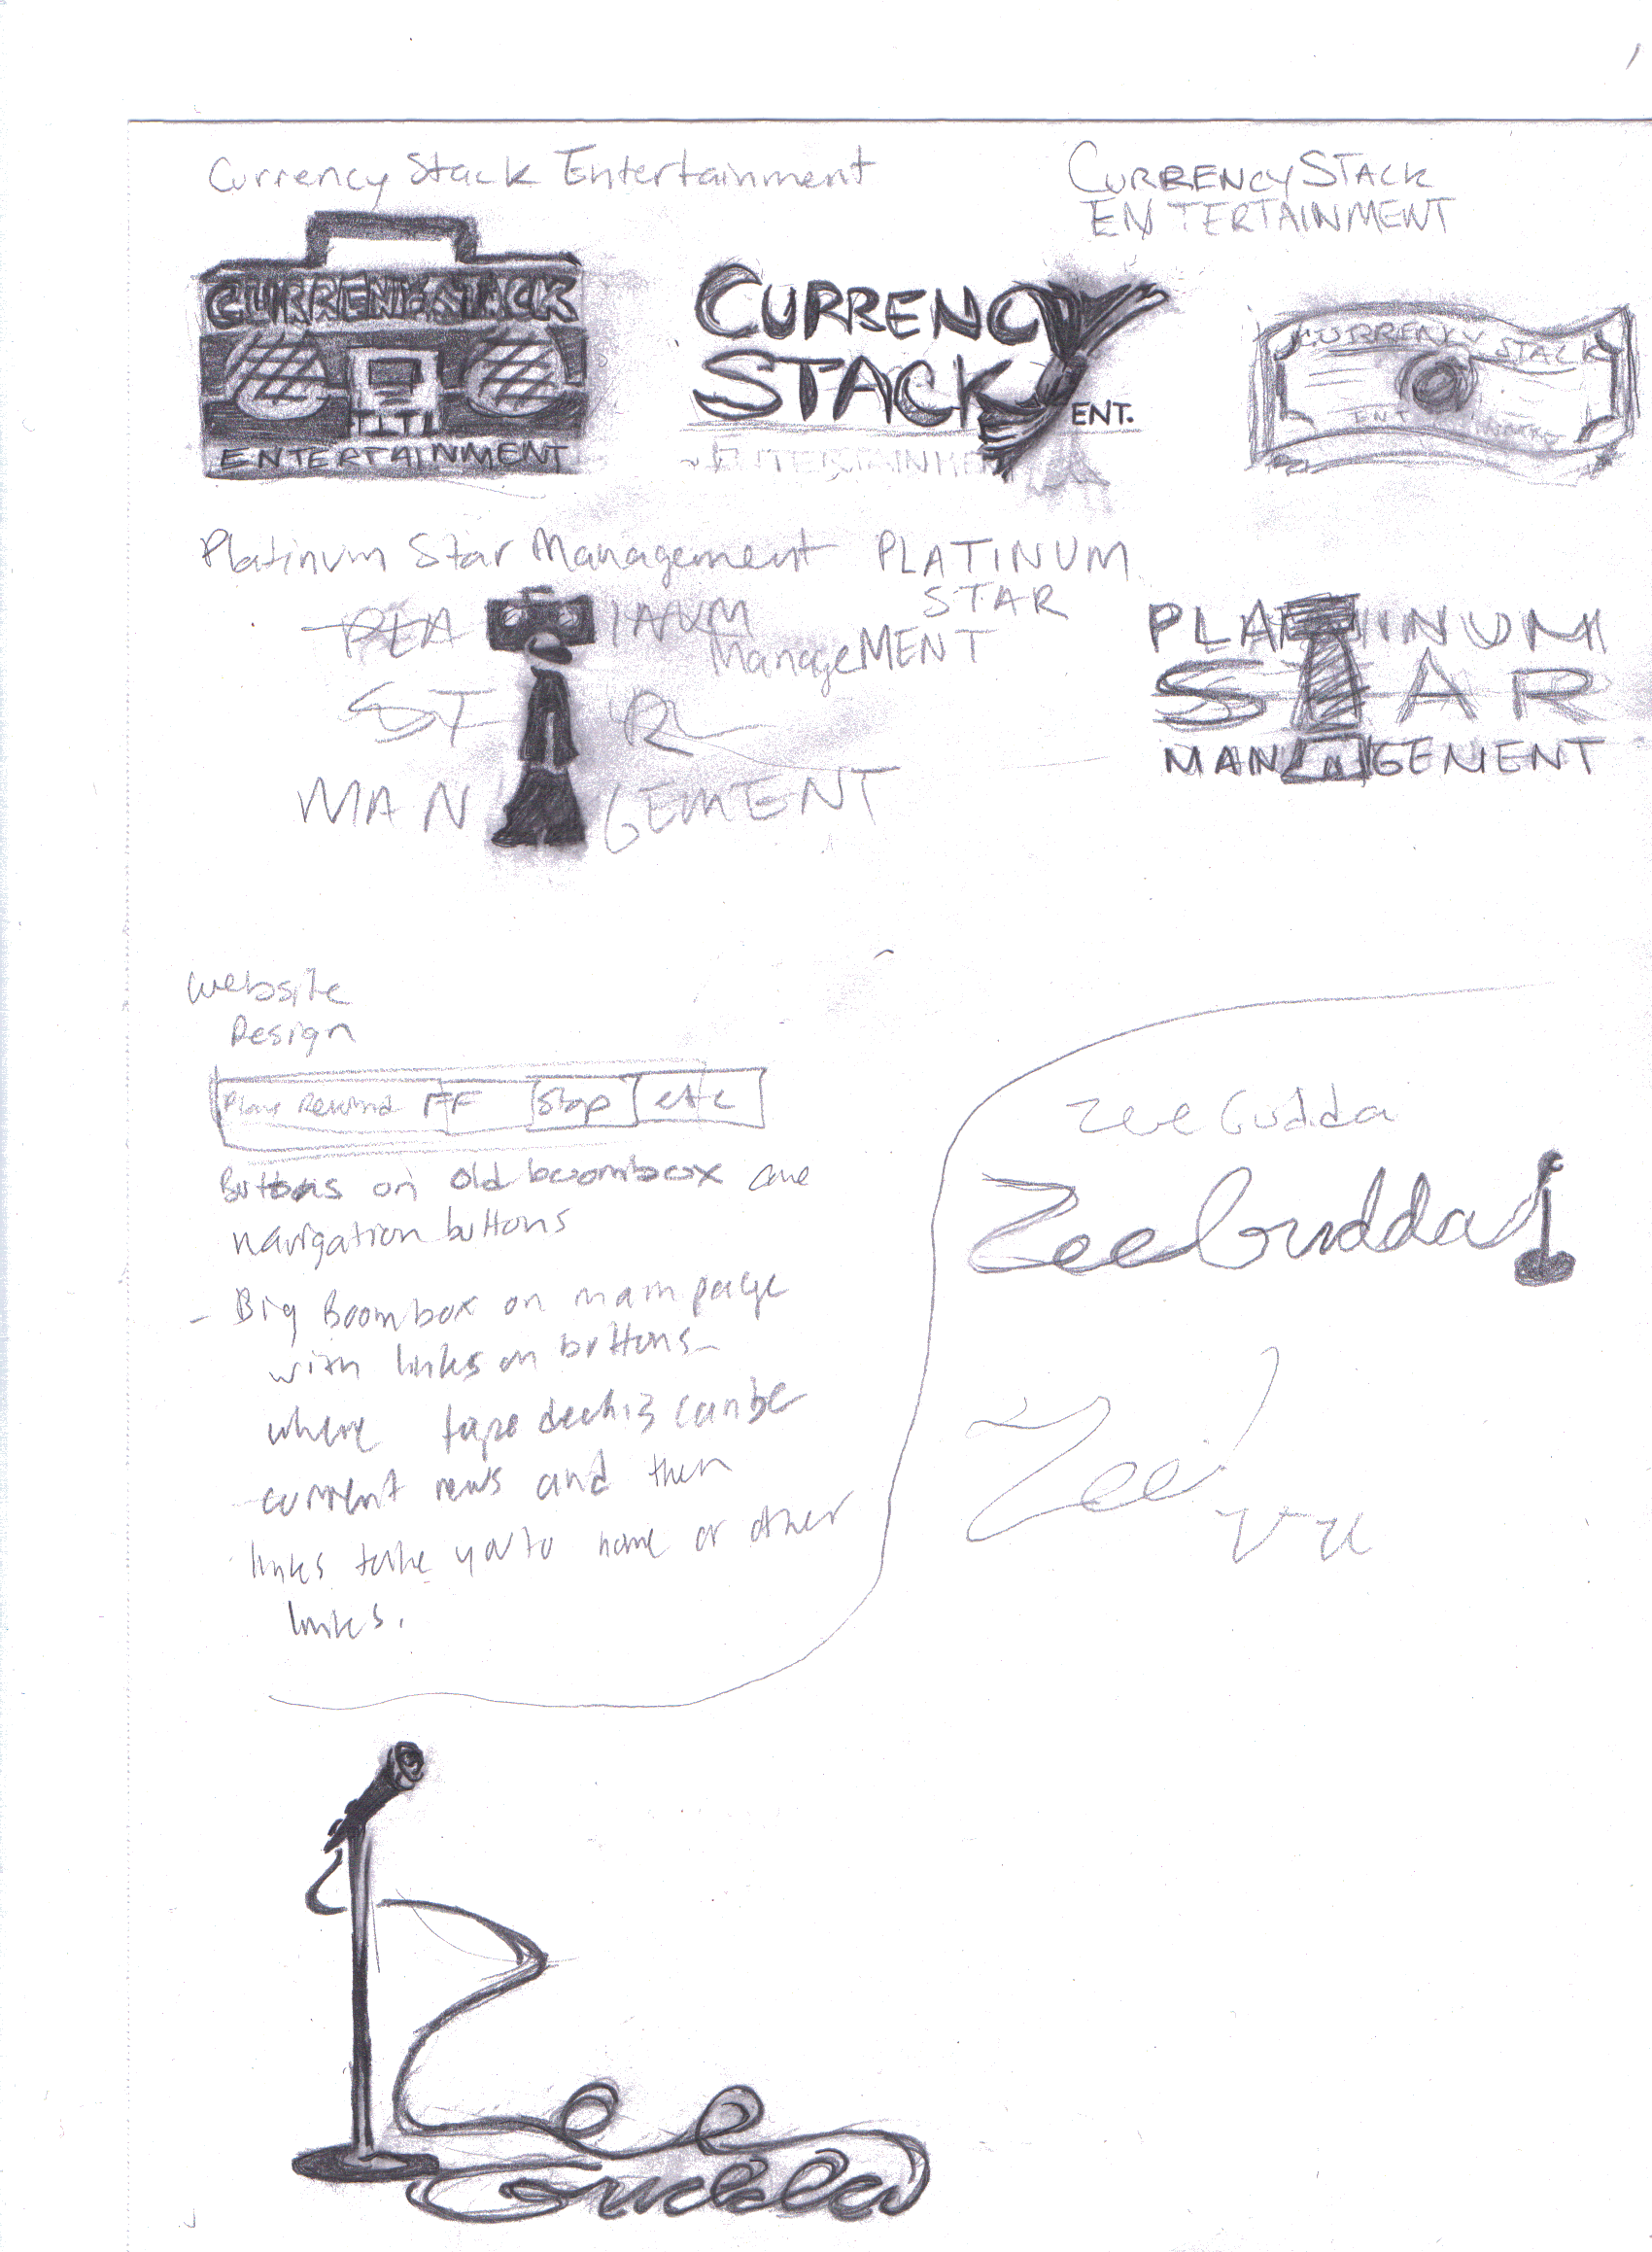 Currency Stack Entertainment
CURRENCY STACK
ENTERTAINMENT
CURRENCY STACK
ENTERTAINMENT
CURRENCY
STACK
ENT.
ENTERTAINMENT
CURRENCY STACK
Platinum Star Management
PLATINUM
STAR
ManageMENT
PLA INUM
ST R
MAN GEMENT
PLATINUM
STAR
MANAGEMENT
website
Design
Play Rewind FF Stop etc
Buttons on old boombox are
navigation buttons
- Big Boombox on main page
with links on buttons
where tape deck is can be
current news and then
links take you to home or other
links.
Zee Gudda
Zee Gudda
Zee
Zee
Gudda